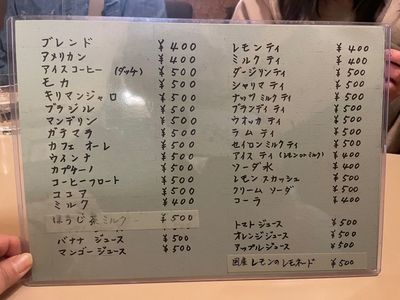 ブレンド ¥400
アメリカン ¥400
アイスコーヒー (ダッチ) ¥500
モカ ¥500
キリマンジャロ ¥500
ブラジル ¥500
マンデリン ¥500
ガテマラ ¥500
カフェ オーレ ¥500
ウインナ ¥500
カプチーノ ¥500
コーヒーフロート ¥500
ココア ¥500
ミルク ¥400
ほうじ茶ミルク ¥500
バナナ ジュース ¥500
マンゴー ジュース ¥500
レモン ティ ¥400
ミルク ティ ¥400
ダージリンティ ¥500
シャリマ ティ ¥500
ナッツ ミルク ティ ¥500
ブランディ ティ ¥500
ウオッカ ティ ¥500
ラム ティ ¥500
セイロンミルクティ ¥500
アイス ティ (レモン or ミルク) ¥400
ソーダ水 ¥400
レモン スカッシュ ¥500
クリーム ソーダ ¥500
コーラ ¥400
トマト ジュース ¥500
オレンジ ジュース ¥500
アップル ジュース ¥500
国産 レモンのレモネード ¥500